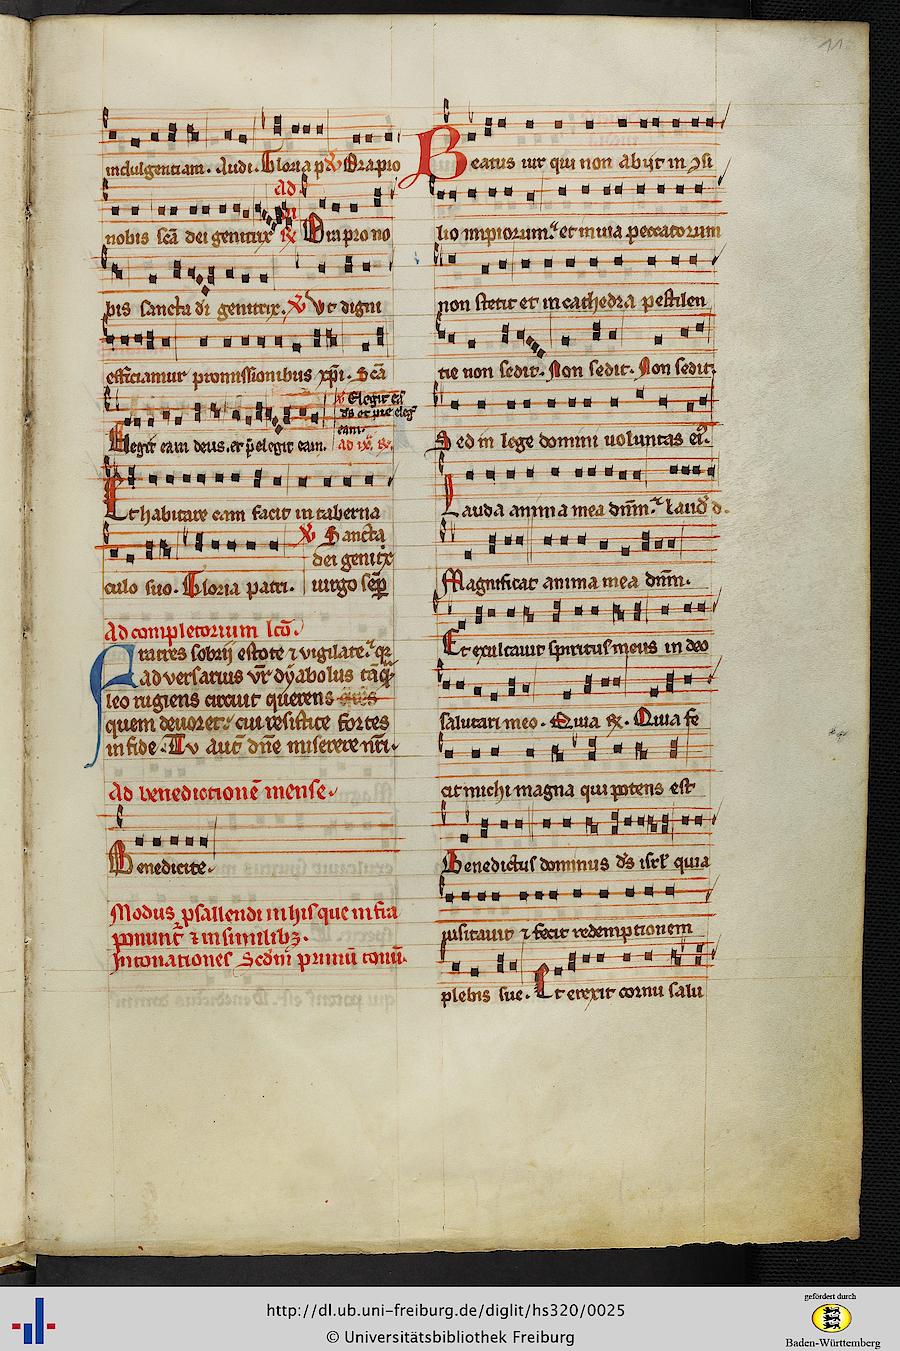 11
indulgentiam. Audi. Gloria p̄ ℣ Ora pro
ad
nobis sc̄a dei genitrix ℟ Ora pro no
bis sancta di genitrix. ℣ Vt digni
efficiamur promissionibus xp̄i. Sc̄a
℣ Elegit eā
ds et pre eleg
eam.
Elegit eam deus. et p̄elegit eam.
ad ix̄. ℟.
Et habitare eam facit in taberna
℣ Sancta
dei genitrix
culo suo. Gloria patri.
uirgo semp̄
Ad completorium lc̄o.
Fratres sobrij estote ⁊ vigilate. qr
aduersarius vr̄ dyabolus tāq̄
leo rugiens circuit querens
quem deuoret. cui resistite fortes
in fide. Tu aut̄ dn̄e miserere nr̄i.
Ad benedictionē mense.
Benedicite.
Modus psallendi in his que infra
ponunt̄ ⁊ in similibꝫ.
Intonationes Scdm̄ primū tonū.
Beatus uir qui non abijt in ↄsi
lio impiorum. et in uia peccatorum
non stetit et in cathedra pestilen
tie non sedit. Non sedit. Non sedit.
Sed in lege domini uoluntas eiꝰ.
Lauda anima mea dn̄m. Laud̄ d.
Magnificat anima mea dn̄m.
Et exultauit spiritus meus in deo
salutari meo. Quia ℟. Quia fe
cit michi magna qui potens est
Benedictus dominus ds̄ isrl̄ quia
uisitauit ⁊ fecit redemptionem
plebis sue. Et erexit cornu salu
http://dl.ub.uni-freiburg.de/diglit/hs320/0025
© Universitätsbibliothek Freiburg
gefördert durch
Baden-Württemberg